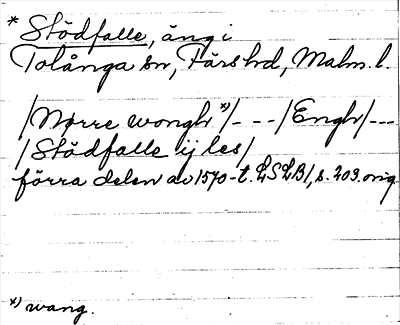 * Stödfalle, äng i
Tolånga sn, Färs hd, Malm. l.
/Nørre wongh *)/ - - - /Engh/ - - -
/Stödfalle ij les/
förra delen av 1570-t. LSLB1, s. 203. orig
*) wang.